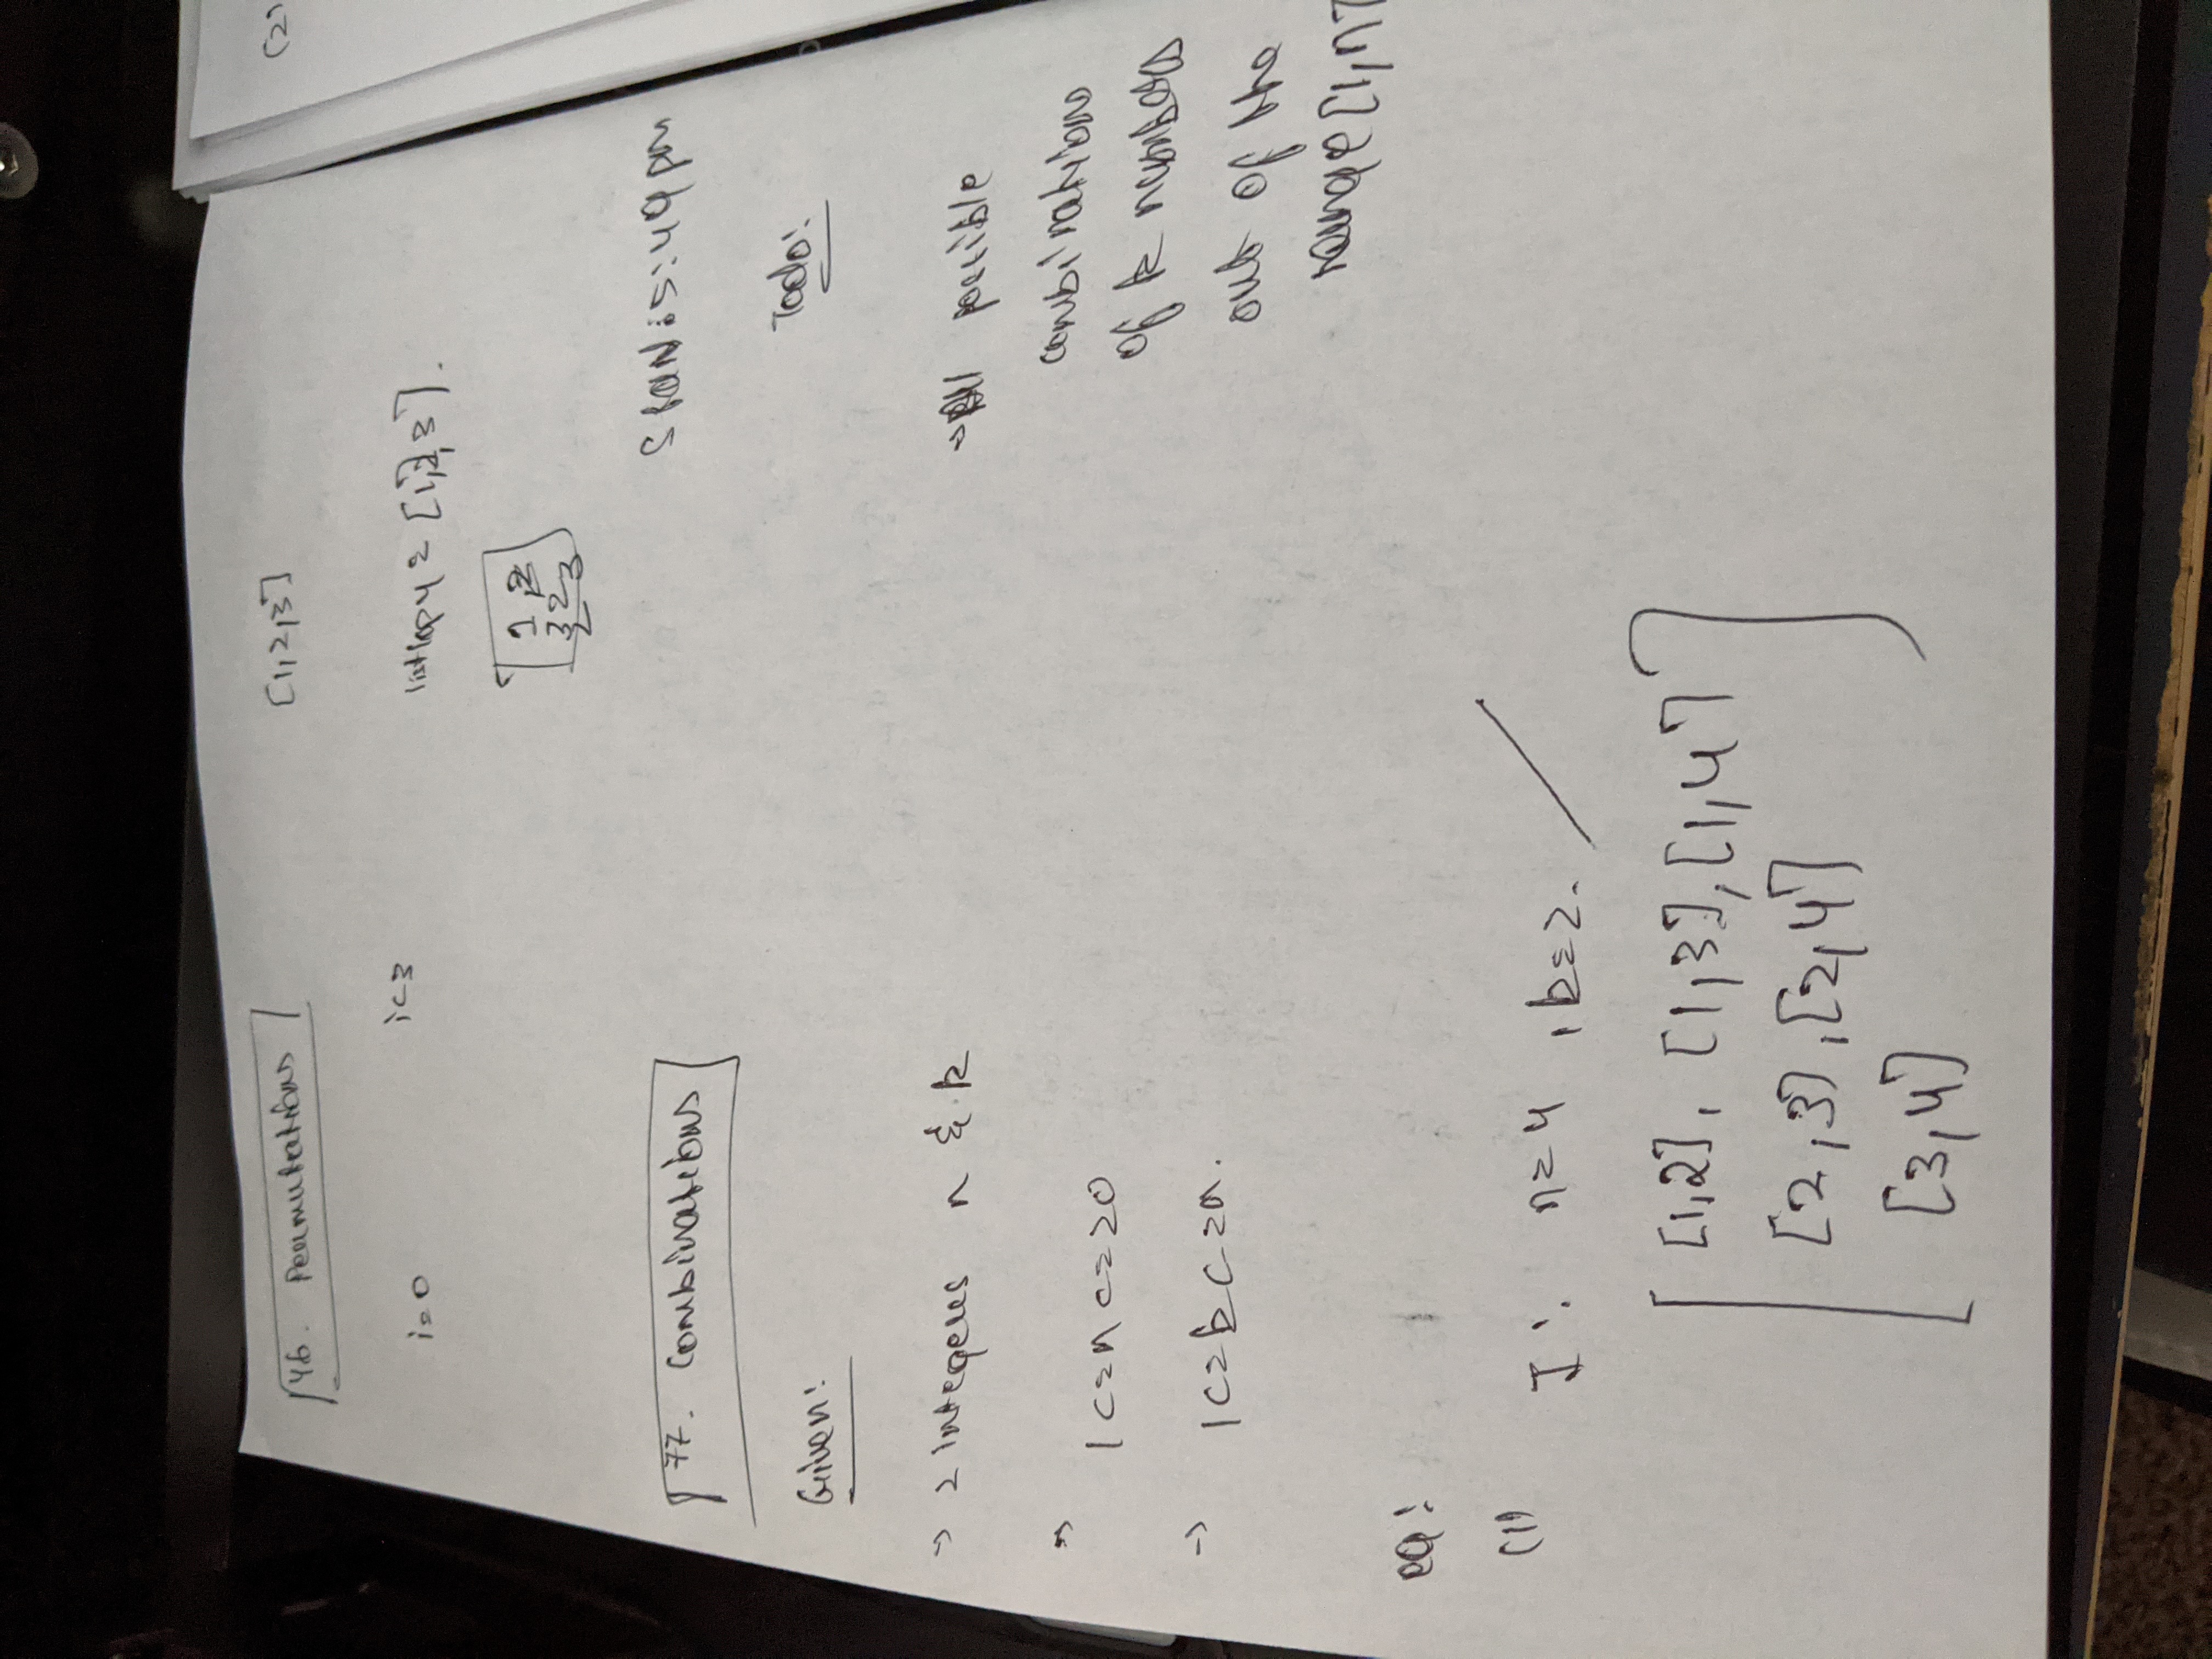 46. Permutations
[1,2,3]
i=0
i<3
listcopy = [1,2,3].
1,2
3 2 3
2
77. Combinations
Start: 5:49 pm
Given:
Todo:
-> 2 integers n & k
-> All possible
combinations
of k numbers
out of the
range [1,n]
-> 1<=n<=20
-> 1<=k<=n.
eg:
(1)
I: n=4, k=2.
[1,2], [1,3], [1,4]
[2,3], [2,4]
[3,4]
(2)